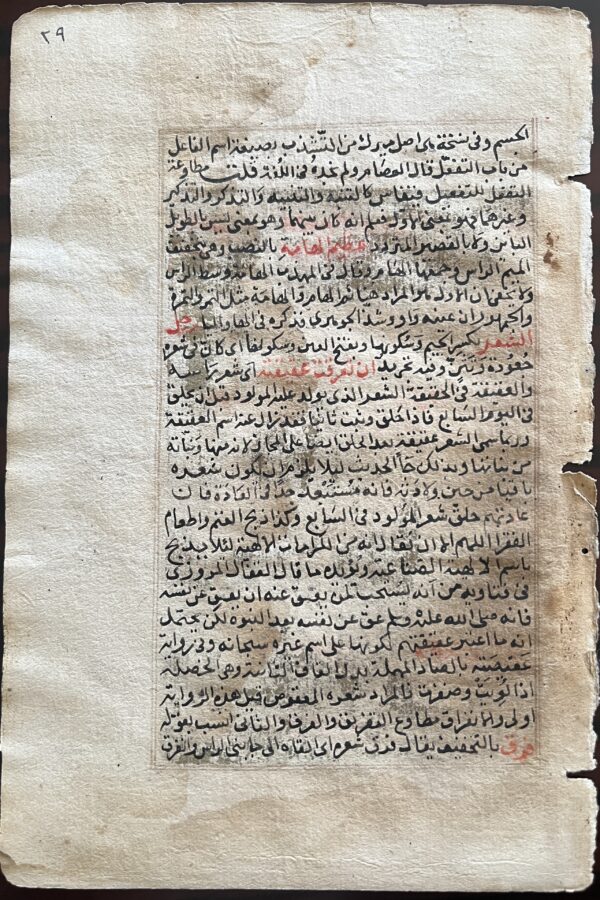 ٢٩
الجسم وفى نسخة بل اصل ميرك من التشذب بصيغة اسم الفاعل
من باب التفعل قال العصام ولم نجده فى اللغة قلت مطاوعة
التفعل للتفعيل قياس كالتنبه والتنبيه والتذكر والتذكير
وغيرها فهو بمعنى الاول
الباين ولا بالقصير المتردد عظيم الهامة بالنصب وهى بتخفيف
الميم الراس وجمعها الهام وقال فى المهذب الهامة وسط الراس
ولا يخفى ان الاول هو المراد هنا ثم الهام والهامة مثل التمر والتمرة
والجمهور ان عينه واو وشذ الجوهرى فذكره فى الهاء والياء رجل
الشعر بكسر الجيم وسكونها وبفتح العين وسكونها اى كان فى شعره
جعودة وتثن ان انفرقت عقيقته اى شعر راسه
والعقيقة فى الحقيقة الشعر الذى يولد عليه المولود قبل ان يحلق
فى اليوم السابع فاذا حلق ونبت ثانيا فقد زال عنه اسم العقيقة
وربما سمى الشعر عقيقة بعد الحلق ايضا على المجاز لانه منها ونباته
من نباتها وبذلك جاء الحديث ليلا يلزم ان يكون شعره
باقيا من حين ولادته فانه مستبعد جدا فى العادة فان
عادتهم حلق شعر المولود فى السابع وكذا ذبح الغنم واطعام
الفقرا اللهم الا ان يقال انه من الكرامات الالهية لئلا يذبح
باسم الالهة ويؤيده ما قال القفال المروزى
فى فتاويه من انه يستحب لمن لم يعق عنه ان يعق عن نفسه
فانه صلى الله عليه وسلم عق عن نفسه بعد النبوة لكن يحتمل
انه ما اعتبر عقيقتهم لكونها على اسم غيره سبحانه وفى رواية
عقيصته بالصاد المهملة بدل القاف الثانية وهى الخصلة
اذا لويت وضفرت فالمراد شعره المعقوص قيل هذه الرواية
اولى والانفراق مطاوع التفريق والفرق والثانى انسب بقوله
فرق بالتخفيف يقال فرق شعره اى القاه الى جانبى الراس والفرق